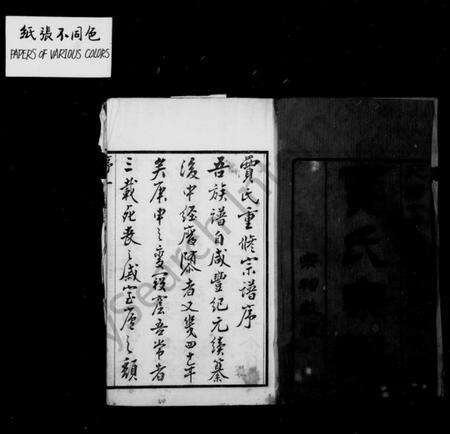 紙張不同色
PAPERS OF VARIOUS COLORS
賈氏重修宗譜序
吾族譜自咸豐紀元續纂
後中經廢墜者又幾四十年
矣庚申之變蹂吾常者
三載死喪之戚室廬之頽
序